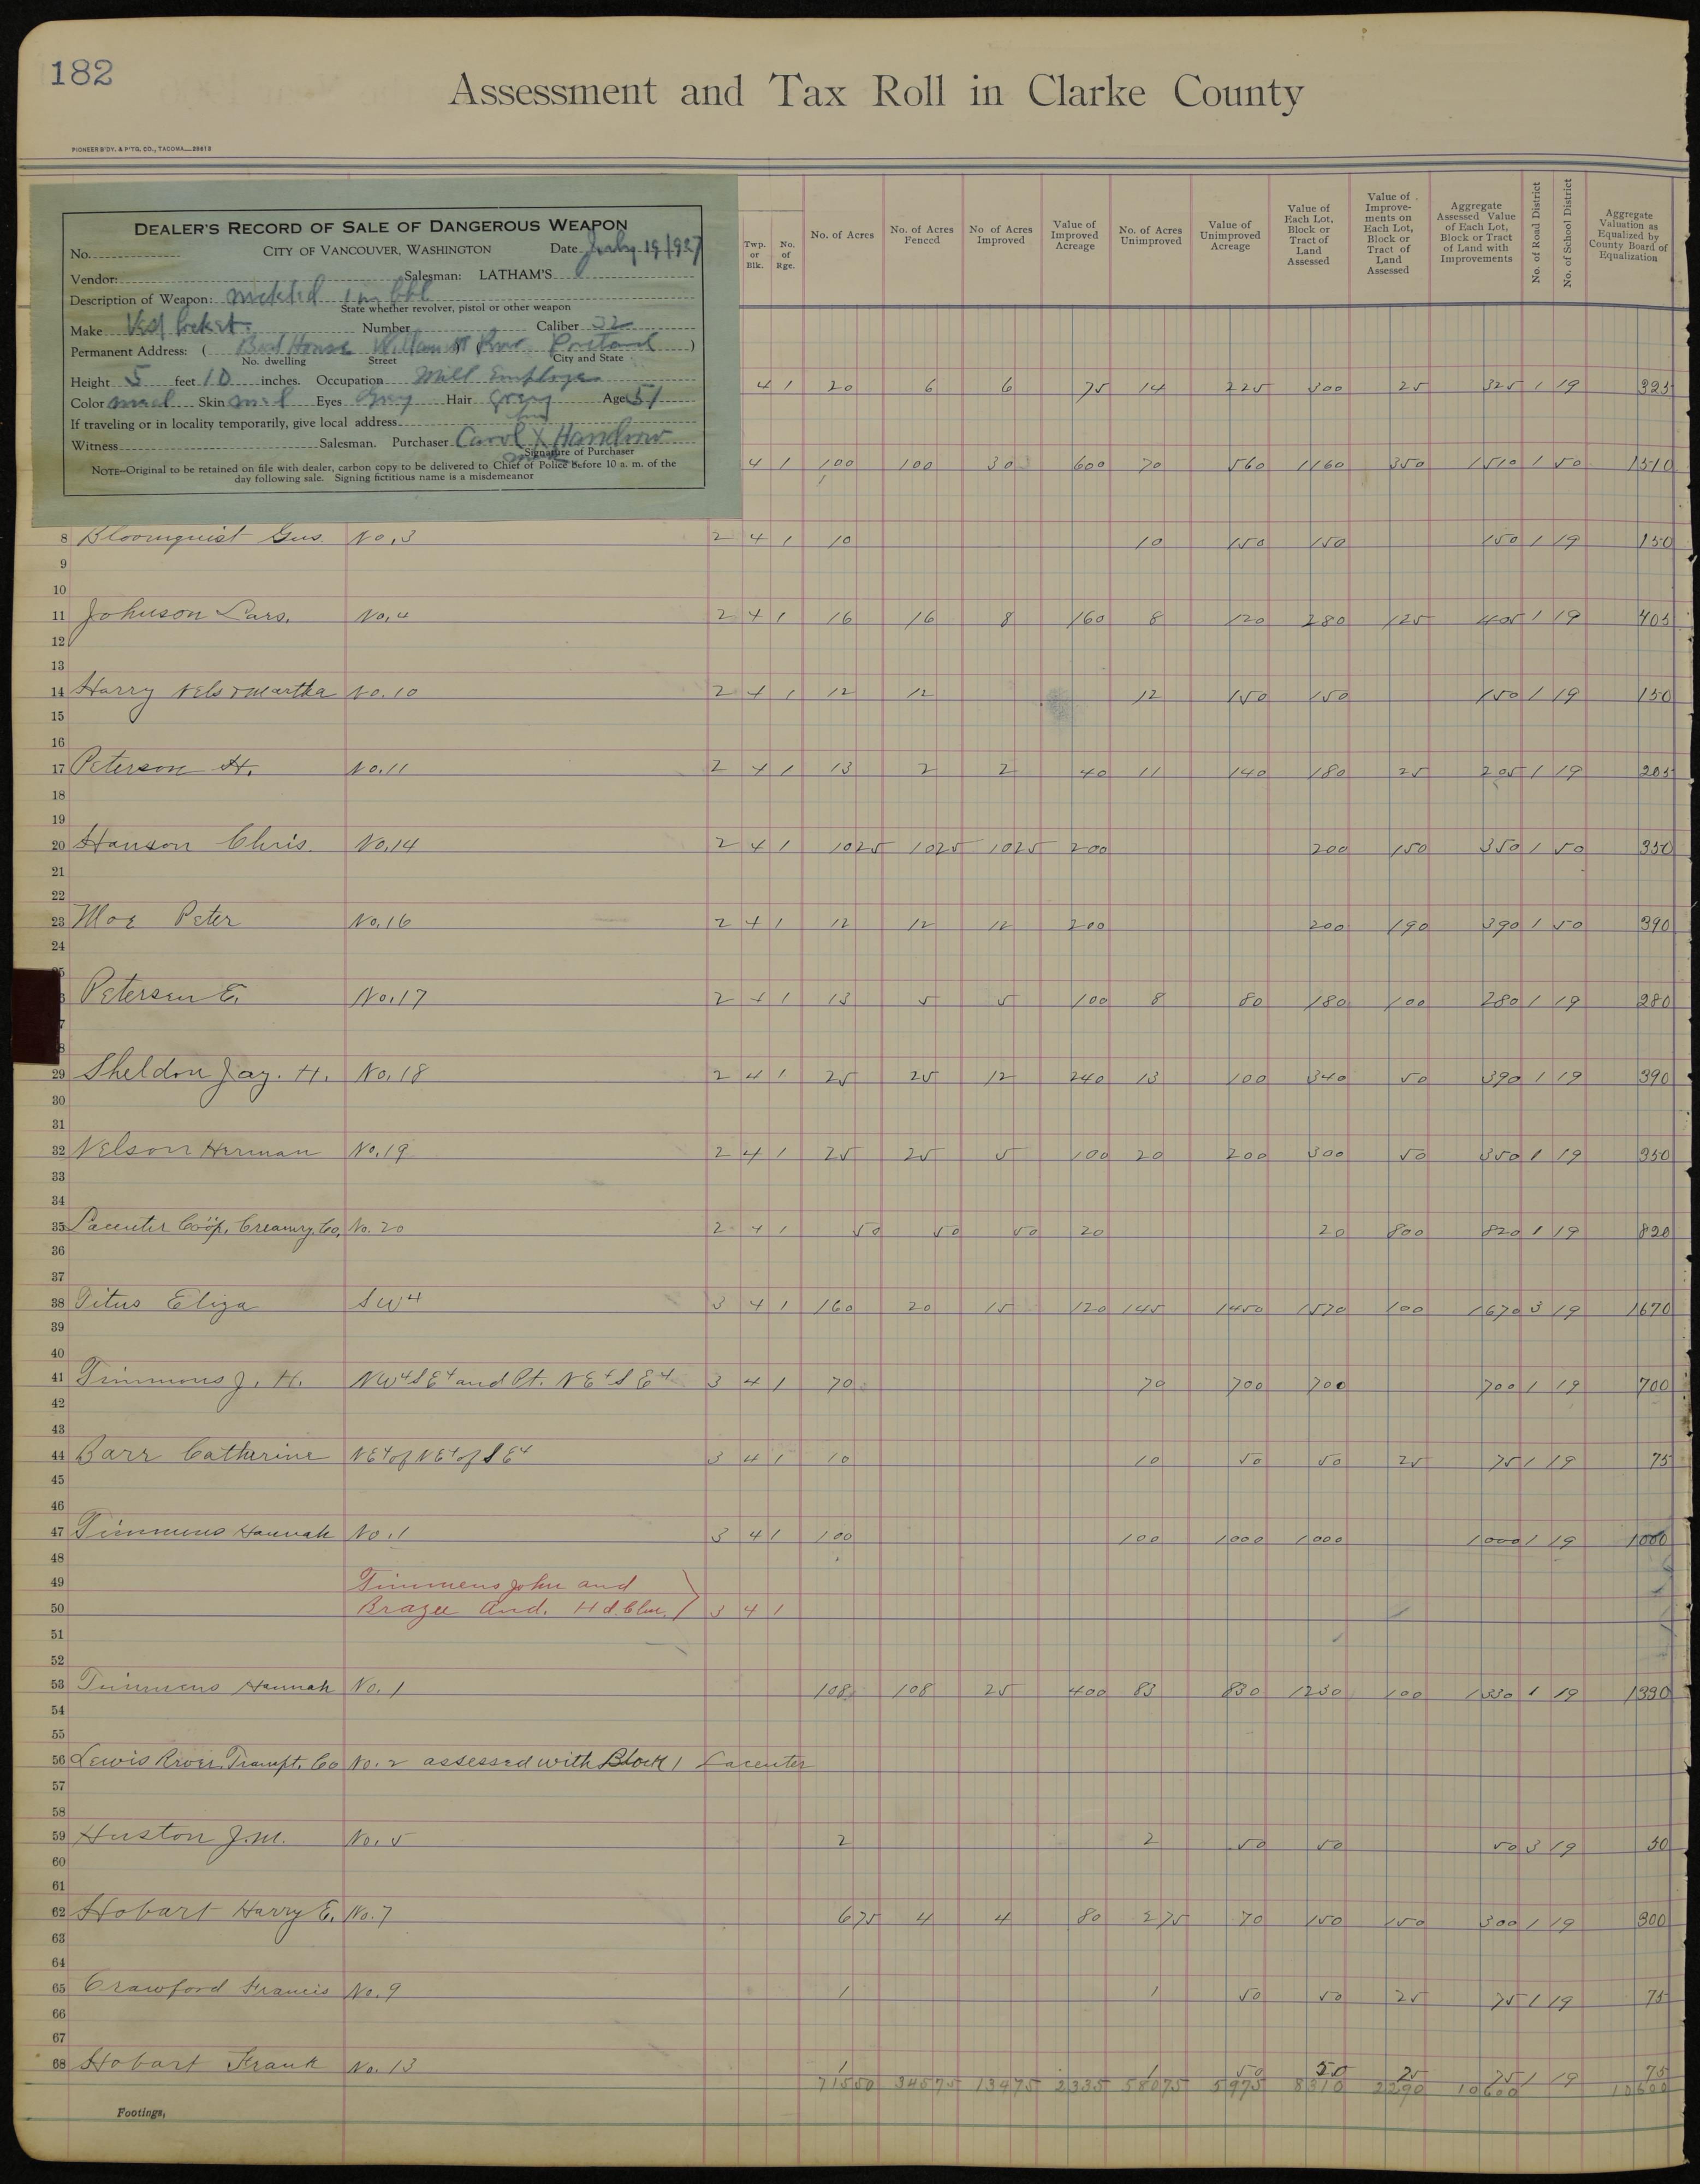 182
Assessment and Tax Roll in Clarke County
PIONEER B'DY. & P'TG. CO., TACOMA
DEALER'S RECORD OF SALE OF DANGEROUS WEAPON
No. CITY OF VANCOUVER, WASHINGTON Date July 19 1927
Vendor: Salesman: LATHAM'S
Description of Weapon:
State whether revolver, pistol or other weapon
Make Vest Pocket Number Caliber 22
Permanent Address: ( House Portland )
No. dwelling Street City and State
Height 5 feet 10 inches. Occupation Mill Employee
Color Skin Eyes Grey Hair Grey Age 51
If traveling or in locality temporarily, give local address
Witness Salesman. Purchaser Carol X
Signature of Purchaser
NOTE—Original to be retained on file with dealer, carbon copy to be delivered to Chief of Police before 10 a. m. of the
day following sale. Signing fictitious name is a misdemeanor
Twp. or Blk. No. of Rge. No. of Acres No. of Acres Fenced No. of Acres Improved Value of Improved Acreage No. of Acres Unimproved Value of Unimproved Acreage Value of Each Lot, Block or Tract of Land Assessed Value of Improvements on Each Lot, Block or Tract of Land Assessed Aggregate Assessed Value of Each Lot, Block or Tract of Land with Improvements No. of Road District No. of School District Aggregate Valuation as Equalized by County Board of Equalization
4 1 20 6 6 75 14 225 300 25 325 1 19 325
4 1 100 100 30 600 70 560 1160 350 1510 1 50 1510
8 Bloomquist Gus. No. 3 2 4 1 10 10 150 150 150 1 19 150
9
10
11 Johnson Lars. No. 4 2 4 1 16 16 8 160 8 120 280 125 405 1 19 405
12
13
14 Harry Nels & Martha No. 10 2 4 1 12 12 12 150 150 150 1 19 150
15
16
17 Peterson H. No. 11 2 4 1 13 2 2 40 11 140 180 25 205 1 19 205
18
19
20 Hanson Chris. No. 14 2 4 1 10 25 10 25 10 25 200 200 150 350 1 50 350
21
22
23 Moe Peter No. 16 2 4 1 12 12 12 200 200 190 390 1 50 390
24
Petersen E. No. 17 2 4 1 13 5 5 100 8 80 180 100 280 1 19 280
29 Sheldon Jay. H. No. 18 2 4 1 25 25 12 240 13 100 340 50 390 1 19 390
30
31
32 Nelson Herman No. 19 2 4 1 25 25 5 100 20 200 300 50 350 1 19 350
33
34
35 Lacenter Coöp. Creamry. Co. No. 20 2 4 1 50 50 50 20 20 800 820 1 19 820
36
37
38 Titus Eliza SW4 3 4 1 160 20 15 120 145 1450 1570 100 1670 3 19 1670
39
40
41 Timmons J. H. NW4SE4 and Pt. NE4SE4 3 4 1 70 70 700 700 700 1 19 700
42
43
44 Barr Catherine NE4 of NE4 of SE4 3 4 1 10 10 50 50 25 75 1 19 75
45
46
47 Timmens Hannah No. 1 3 4 1 100 100 1000 1000 1000 1 19 1000
48
49 Timmens John and
50 Brazee And. Hd. Clm. 3 4 1
51
52
53 Timmens Hannah No. 1 108 108 25 400 83 830 1230 100 1330 1 19 1330
54
55
56 Lewis River Transpt. Co No. 2 assessed with Block 1 Lacenter
57
58
59 Huston J. M. No. 5 2 2 50 50 50 3 19 50
60
61
62 Hobart Harry E. No. 7 6 75 4 4 80 2 75 70 150 150 300 1 19 300
63
64
65 Crawford Francis No. 9 1 1 50 50 25 75 1 19 75
66
67
68 Hobart Frank No. 13 1 1 50 50 25 75 1 19 75
71550 34575 13475 2335 58075 5975 8310 2290 10600 10600
Footings,